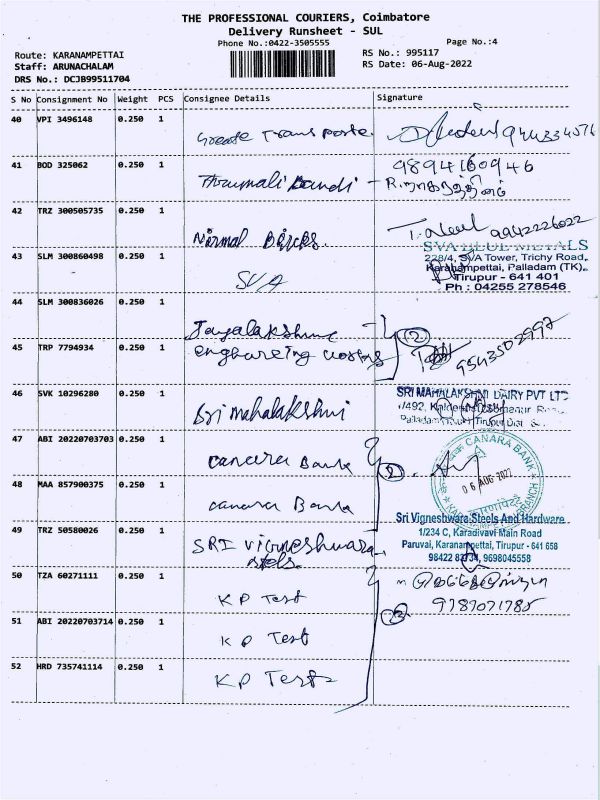 THE PROFESSIONAL COURIERS, Coimbatore
Delivery Runsheet - SUL
Phone No.:0422-3505555
Page No.:4
Route: KARANAMPETTAI
RS No.: 995117
Staff: ARUNACHALAM
RS Date: 06-Aug-2022
DRS No.: DCJB99511704
S No Consignment No Weight PCS Consignee Details Signature
40 VPI 3496148 0.250 1
41 BOD 325062 0.250 1 9894160946
42 TRZ 300505735 0.250 1 Nirmal Bricks. 9942226022
43 SLM 300860498 0.250 1 SVA
SVA BLUE METALS
228/4, SVA Tower, Trichy Road,
Karanampettai, Palladam (TK),
Tirupur - 641 401
Ph : 04255 278546
44 SLM 300836026 0.250 1
45 TRP 7794934 0.250 1 2
46 SVK 10296280 0.250 1 Sri mahalakshmi
SRI MAHALAKSHMI DAIRY PVT LTD
47 ABI 20220703703 0.250 1 canara Bank
CANARA BANK
06 AUG 2022
48 MAA 857900375 0.250 1 canara Bank
49 TRZ 50580026 0.250 1 SRI vigneshwara
steels.
Sri Vigneshwara Steels And Hardware
1/234 C, Karadivavi Main Road
Paruvai, Karanampettai, Tirupur - 641 658
98422 9698045558
50 TZA 60271111 0.250 1 KP Test
9787071785
51 ABI 20220703714 0.250 1 KP Test
52 HRD 735741114 0.250 1 KP Test